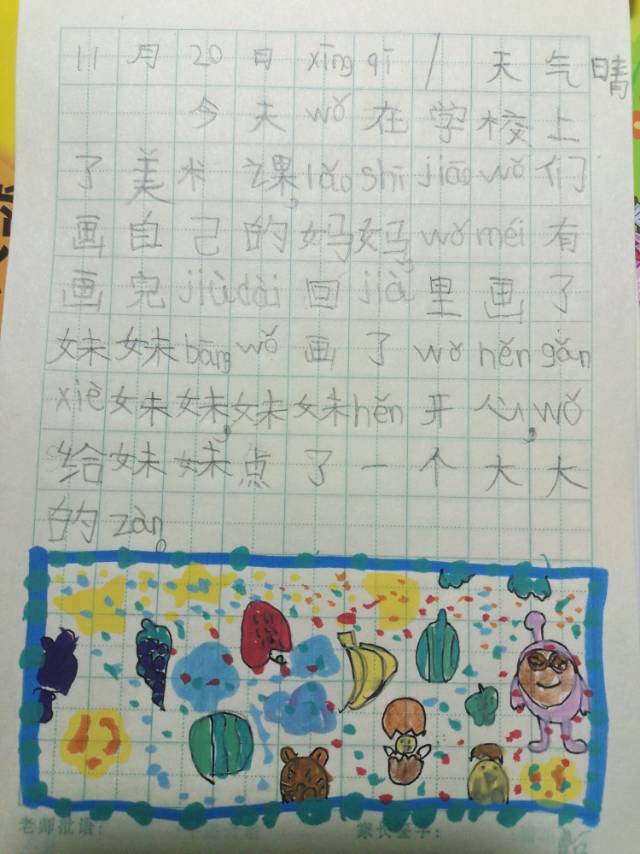 11月20日xīng qī / 天气晴
今天wǒ在学校上
了美术课,lǎo shī jiāo wǒ们
画自己的妈妈,wǒ méi有
画完jiù dài回jiā里画了
妹妹bāng wǒ画了wǒ hěn gǎn
xiè妹妹,妹妹hěn开心,wǒ
给妹妹点了一个大大
的zàn。
老师批语: 家长签字: